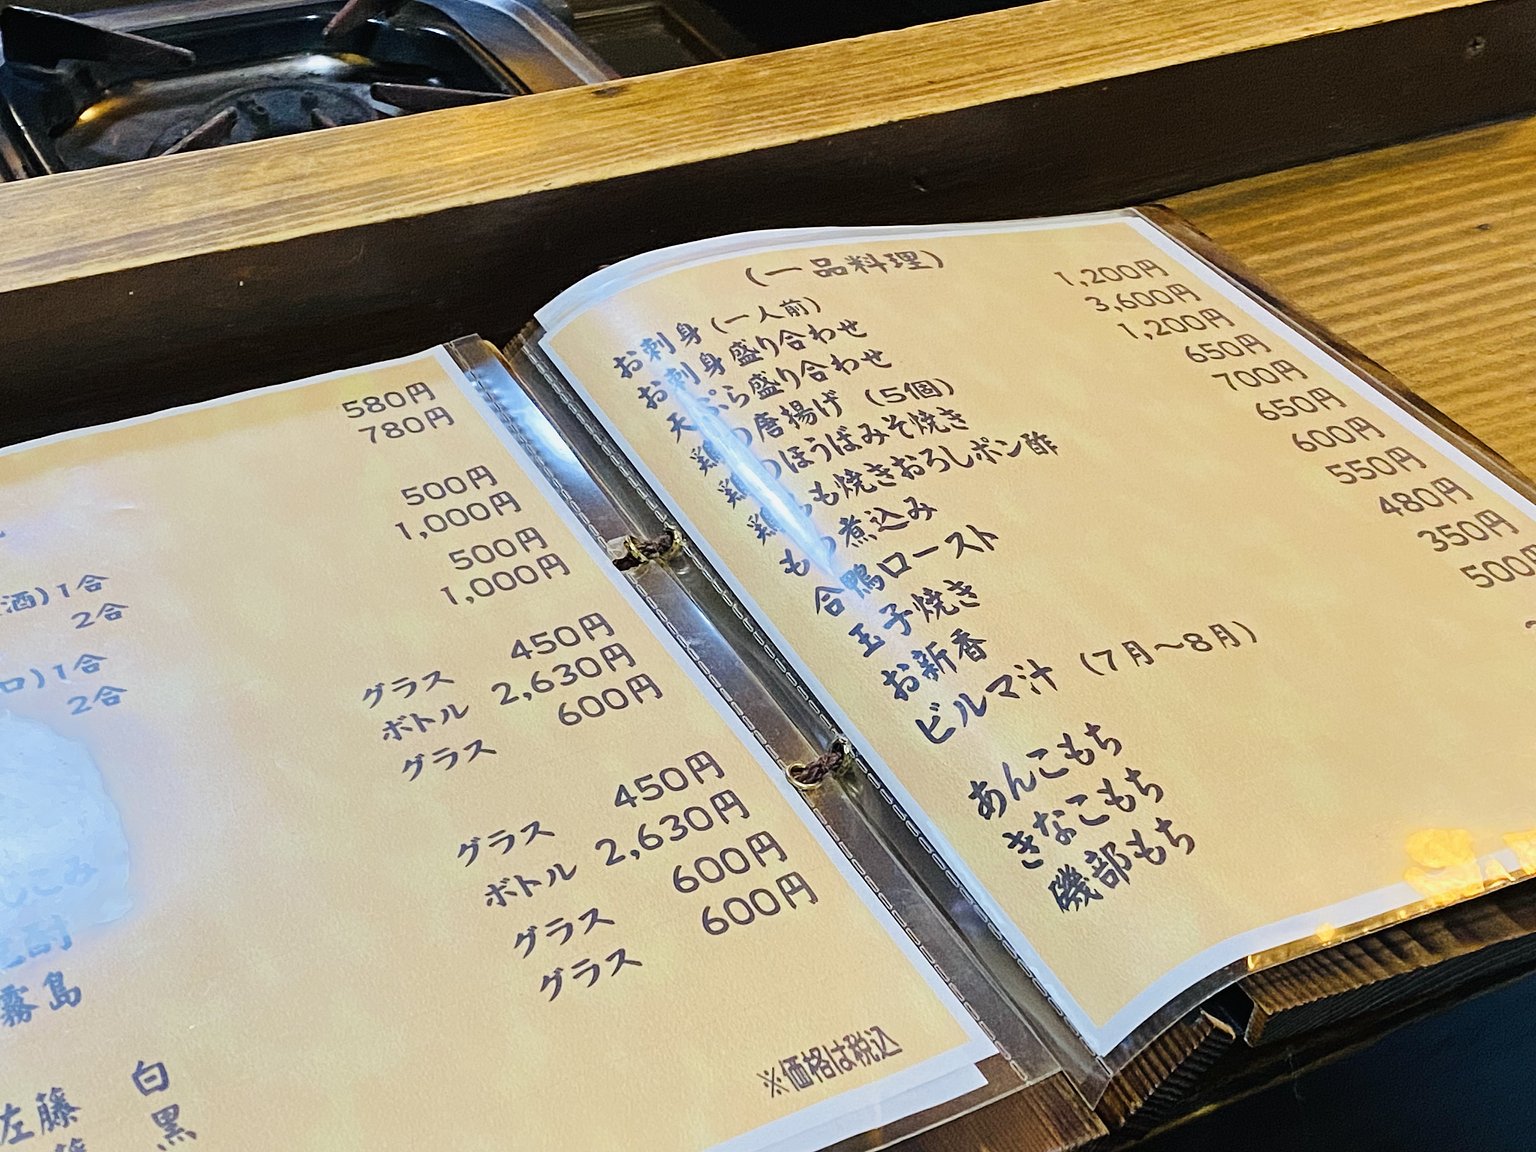 580円
780円
酒)1合 500円
2合 1,000円
ロ)1合 500円
2合 1,000円
グラス 450円
ボトル 2,630円
グラス 600円
霧島
グラス 450円
ボトル 2,630円
左藤 白 グラス 600円
黒 グラス 600円
※価格は税込
(一品料理)
お刺身(一人前) 1,200円
お刺身盛り合わせ 3,600円
天ぷら盛り合わせ 1,200円
鶏の唐揚げ(5個) 650円
鶏のほうばみそ焼き 700円
鶏もも焼きおろしポン酢 650円
もつ煮込み 600円
合鴨ロースト 550円
玉子焼き 480円
お新香 350円
ビルマ汁(7月～8月) 500円
あんこもち
きなこもち
磯部もち